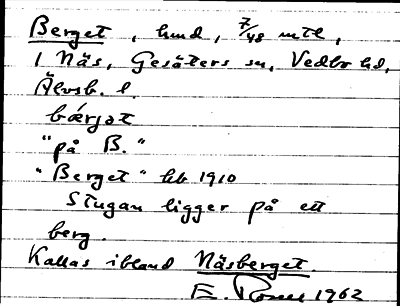 Berget, hmd, 7/48 mtl,
1 Näs, Gesäters sn, Vedbo hd,
Älvsb. l.
bærjət
"på B."
"Berget" hb 1910
Stugan ligger på ett
berg.
Kallas ibland Näsberget
E. 1962